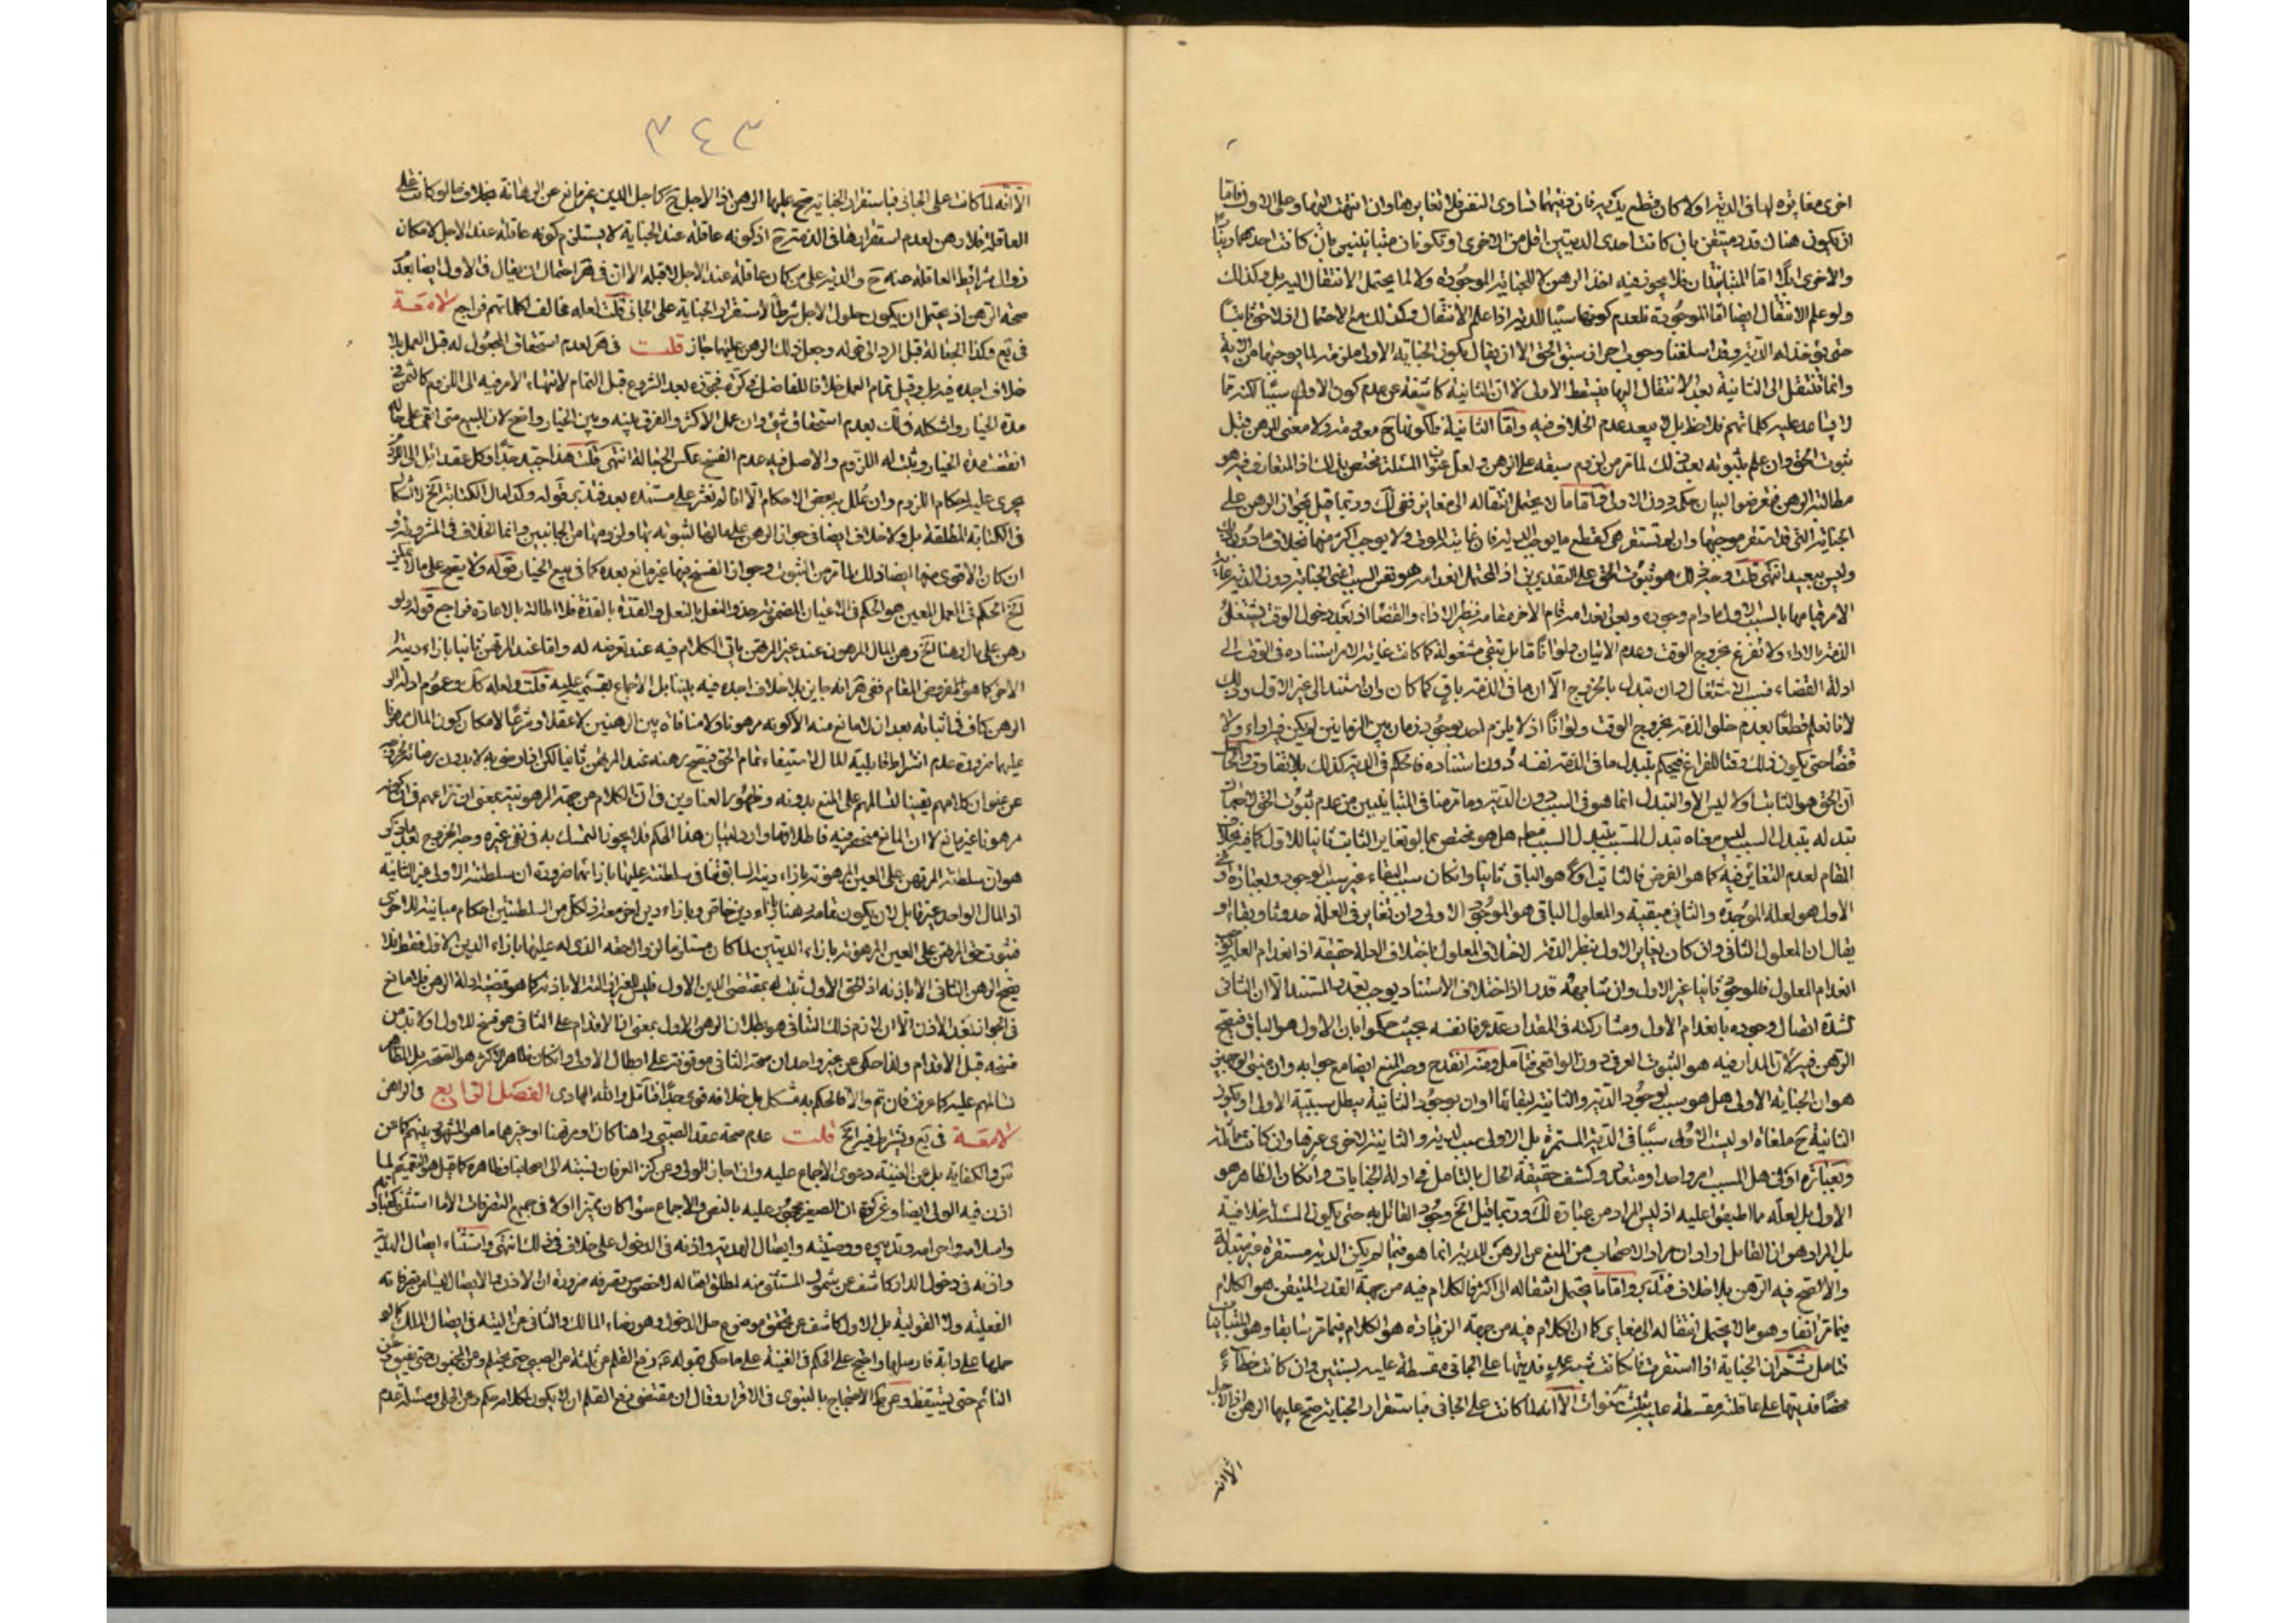 اخرى مغايرة لها فى الدية اولا كان قطع يديه فان فيهما تساوى النفس فلا تغاير هنا وان انتهت اليها وعلى الاول فاما
ان يكون هناك قدر متيقن بان كانت احدى الديتين اقل من الاخرى او تكونان متباينتين بان كانت احدهما دينارا
والاخرى ابلا اما المتباينتان فلا يجوز فيه اخذ الرهن لا للجناية الموجودة ولا لما يحتمل الانتقال اليه بل وكذلك
ولو علم الانتقال ايضا اما الموجودة فلعدم كونها سببا للدية اذا علم الانتقال وكذلك مع الاحتمال اذ لا حق ثابتا
حتى يؤخذ له الدية وقد اسلفنا وجوب احراز سبق الحق الا ان يقال بكون الجناية الاولى ملزمة لما يوجبها من الدية
وانما تنتقل الى الثانية بعد الانتقال اليها فيسقط الاولى لا ان الثانية كاشفة عن عدم كون الاولى سببا لكنه مما
لا يساعد عليه كلماتهم فلاحظ بل لا يبعد عدم الخلاف فيه واما الثانية فلكونها ح معدومة ولا معنى للرهن قبل
ثبوت الحق وان علم بثبوته بعد ذلك لما مر من لزوم سبقه على الرهن ولعل عنوان المسئلة مختص بذلك اذ المتعارف فيه هو
مطالبة الرهن فتعرضوا لبيان حكمه دون الاول واما ما لا يحتمل انتقاله الى مغاير ففى لك وربما قيل بجواز الرهن على
الجناية التى قد استقر موجبها وان لم تستقر هى كقطع ما يوجب الدية فان غايته الموت ولا يوجب اكثر منها بخلاف ما دون ذلك
وليس ببعيد انتهى قلت وجه ذلك هو ثبوت الحق على التقديرين اذ المحتمل انعدامه هو نفس السبب اعنى الجناية دون الدية غاية
الامر قيامها بالسبب الاول ما دام وجوده وبعد انعدامه قام الاخر مقامه نظير الاداء والقضاء اذ بعد دخول الوقت يشتغل
الذمة بالاداء ولا تفرغ بخروج الوقت وعدم الاتيان ولو انا قابل يبقى مشغولة كما كانت غاية الامر استناده فى الوقت الى
ادلة القضاء فسبب الاشتغال وان تبدل بالخروج الا ان ما فى الذمة باق كما كان وان استند الى غير الاول وذلك
لانا نعلم قطعا بعدم خلو الذمة بخروج الوقت ولو انا اذ لا يلزم احد بوجود زمان بين الزمانين لم يكن فيه اداء ولا
قضاء حتى يكون ذلك وقتا للفراغ فيحكم بتبدل ما فى الذمة نفسه دون استناده فالحكم فى الدية كذلك بلا تفاوت والحاصل
ان الحق هو الثابت اولا ليس الا والتبدل انما هو فى السبب دون الدية وما مر هنا فى المتباينين من عدم ثبوت الحق لاحتمال
تبدله بتبدل السبب ليس معناه تبدل المسبب بتبدل السبب مط بل هو مختص بما لو تغاير الثابت ثانيا للاول كما فيه بخلاف
المقام لعدم التغاير فيه كما هو الفرض فالثابت اولا هو الباقى ثانيا وان كان سبب البقاء غير سبب الوجود وبعبارة اخرى
الاول هو لعلة الموجدة والثانى مبقية والمعلول الباقى هو الموجود الاولى وان تغاير فى العلة حدوثا وبقاء او
يقال ان المعلول الثانى وان كان يغاير الاول بنظر الدقة لاختلاف المعلول باختلاف العلة حقيقة اذ انعدام العلة يوجب
انعدام المعلول فالموجود ثانيا غير الاول وان شابهه قدرا اذ اختلاف الاستناد يوجب تعدد المستند الا ان الثانى
لشدة اتصال وجوده بانعدام الاول ومشاركته فى المقدار عد عرفا نفسه بحيث حكموا بان الاول هو الباقى فيصح
الرهن فيه لان المدار فيه هو الثبوت العرفى دون الواقعى فتامل ومنه انقدح وجه المنع ايضا مع جوابه وان مبنى الوجهين
هو ان الجناية الاولى هل هو سبب لوجود الدية والثانية لبقائها او ان بوجود الثانية يبطل سببية الاولى او يكون
الثانية ح ملغاة او ليست الاولى سببا فى الدية المستمرة بل الاولى سبب لدية والثانية لاخرى غيرها وان كانت مماثلة
وبعبارة اوفى هل المسبب امر واحد او متعدد وكشف حقيقة الحال بالتامل فى ادلة الجنايات وان كان الظاهر هو
الاول بل لعله مما اطبقوا عليه اذ ليس المراد من عبارة لك وربما قيل الخ وجود القائل به حتى يكون المسئلة خلافية
بل المراد هو ان القائل اراد ان مراد الاصحاب من المنع عن الرهن لدية انما هو فيما لم يكن الدية مستقرة غير متبدلة
والا لصح فيه الرهن بلا خلاف فتدبر واما ما يحتمل انتقاله الى اكثر فالكلام فيه من جهة القدر المتيقن هو الكلام
فيما مر انفا وهو ما لا يحتمل انتقاله الى مغاير كما ان الكلام فيه من جهة الزيادة هو الكلام فيما مر سابقا وهو المتباينان
فتامل ثم ان الجناية اذا استقرت فان كانت شبه عمد فديتها على الجانى مقسطة عليه بسنتين وان كانت خطاء
محضا فديتها على عاقلته مقسطة عليه بثلث سنوات الا انه لما كانت على الجانى فباستقرار الجناية صح عليها الرهن اذ الاجل
الا انه
٣٤٣
الا انه لما كانت على الجانى فباستقرار الجناية صح عليها الرهن اذ الاجل ح كاجل الدين غير مانع عن الرهانة بخلاف ما لو كانت على
العاقلة فلا رهن لعدم استقرارها فى الذمة ح اذ كونه عاقلة عند الجناية لا يستلزم كونه عاقلة عند الاجل لامكان
زوال شرائط العاقلة عنه ح والدية على من كان عاقلة عند الاجل لا قبله الا ان فى هر احتمال ان يقال فى الاول ايضا بعدم
صحة الرهن اذ يحتمل ان يكون حلول الاجل شرطا لاستقرار الجناية على الجانى قلت لعله مخالف لكلماتهم فراجع لامعة
فى يع وكذا الجعالة قبل الرد الى قوله وجعل ذلك الرهن عليها جاز قلت فى هر لعدم استحقاق المجعول له قبل العمل بلا
خلاف اجده فيه بل وقبل تمام العمل خلافا للفاضل فى كره فجوزه بعد الشروع قبل التمام لانتهاء الامر فيه الى اللزوم كالثمن فى
مدة الخيار واشكله فى لك بعدم استحقاق شئ وان عمل الاكثر والفرق بينه وبين الخيار واضح لان البيع متى ابقى على حاله
انقضت مدة الخيار وثبت له اللزوم والاصل فيه عدم الفسخ عكس الجعالة انتهى قلت هذا جيد جدا وكل عقد ائل الى اللزوم
يجرى عليه احكام اللزوم وان علل به بعض الاحكام الا انا لم نعثر على مستنده بعد فتدبر قوله وكذا مال الكتابة الخ لا اشكال
فى الكتابة المطلقة بل ولا خلاف ايضا فى جواز الرهن على مالها لثبوته بها ولزومها من الجانبين وانما الخلاف فى المشروطة و
ان كان الاقوى فيهما ايضا ذلك لما مر من الثبوت وجواز الفسخ فيها غير مانع بعده كما فى بيع الخيار قوله ولا يصح على ما لا يمكن
الخ الحكم فى العمل المعين هو الحكم فى الاعيان المضمونة حذو النعل بالنعل والقذة بالقذة فلا اطالة بالاعادة فراجع قوله ولو
رهن على مال رهنا الخ رهن المال المرهون عند غير المرتهن ياتى الكلام فيه عند تعرضه له واما عند المرتهن ثانيا بازاء دينه
الاخر كما هو المفروض المقام ففى هر انه جايز بلا خلاف اجده فيه بيننا بل الاجماع بقسميه عليه قلت ولعله كك وعموم ادلة
الرهن كاف فى اثباته بعد ان لا مانع منه الا كونه مرهونا ولا منافاة بين الرهنين لا عقلا ولا شرعا لامكان كون المال مرهونا
عليهما ضرورة عدم اشتراط قابلية المال لاستيفاء تمام الحق فيصح رهنه عند المرتهن ثانيا لكن اذا رضى به لا بدون رضائه لخروجه
عن عنوان كلامهم يقينا لتسالمهم على المنع بدونه وظهور العناوين فى ان الكلام من جهة المرهونية بمعنى ان نزاعهم فى ان كونه
مرهونا غير مانع لا ان المانع منحصر فيه فاطلاقها وارد لبيان هذا الحكم فلا يجوز التمسك به فى نفى غيره وجه الخروج لعله ما ذكر
هو ان سلطنة المرتهن على العين المرهونة بازاء دينه السابق تنافى سلطنته عليها بازائهما ضرورة ان سلطنته الاولى غير الثانية
اذ المال الواحد غير قابل لان يكون بتمامه رهنا بازاء دين خاص وبازاء دين اخر معه اذ لكل من السلطنتين احكام مباينة للاخرى
فثبوت حق المرتهن على العين المرهونة بازاء الدينين لما كان مستلزما لزوال حقه الذى له عليها بازاء الدين الاول فقط فلا
يصح الرهن الثانى الا باذنه اذ الحق الاول ثبت له بمقتضى الدين الاول فليس للغير ازالته الا باذنه كما هو قضية ادلة الرهن فلا مانع
فى الجواز بعد الاذن الا ان لازم ذلك الثانى هو بطلان الرهن الاول بمعنى ان الاقدام على الثانى هو فسخ للاول او لا بد من
فسخه قبل الاقدام ولذا حكى عن غير واحد ان صحة الثانى موقوفة على ابطال الاول وان كان ظاهر الاكثر هو الصحة بل الظاهر
تسالمهم عليه كما عرفت فان تم والا فالحكم به مشكل بل خلافه قوى جدا فتامل والله الهادى الفصل الرابع فى الراهن
لامعة فى يع ويشترط فيه الخ قلت عدم صحة عقد الصبى راهنا كان او مرتهنا او غيرهما ما هو المشهور بينهم كما عن
س والكفاية بل عن الغنية دعوى الاجماع عليه وان اجاز الولى وعن كنز العرفان نسبته الى اصحابنا وظاهره كما قيل هو التعميم لما
اذن فيه الولى ايضا وعن كره ان الصغير محجور عليه بالنص والاجماع سواء كان مميزا اولا فى جميع التصرفات الا ما استثنى كعباداته
واسلامه واحرامه وتدبيره ووصيته وايصال الهدية واذنه فى الدخول على خلاف فى ذلك انتهى واستثناء ايصال الهدية
واذنه فى دخول الدار كاشف عن شمول المستثنى منه لمطلق افعاله لا خصوص تصرفه ضرورة ان الاذن والايصال ليسا من تصرفاته
الفعلية ولا القولية بل الاول كاشف عن تحقق موضوع حل الدخول وهو رضاء المالك والثانى من الية فى ايصال الملك كما لو
حملها على دابة فارسلها واحتج على الحكم فى الغنية على ما حكى بقوله ع رفع القلم عن ثلثة عن الصبى حتى يحتلم وعن المجنون حتى يفيق وعن
النائم حتى يستيقظ وعن ط الاحتجاج بالنبوى فى الاقرار وقال ان مقتضى رفع القلم ان لا يكون لكلامه حكم وعن الحلى فى مسئلة عدم